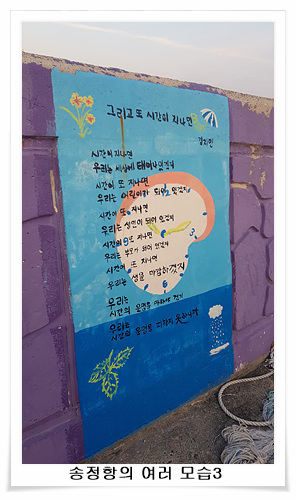 그리고 또 시간이 지나면
시간이 지나면
우리는 세상에 태어나 있겠지
시간이 또 지나면
우리는 어린이가 되어 있겠지
시간이 또 지나면
우리는 성인이 되어 있겠지
시간이 또 지나면
우리는 부모가 되어 있겠지
시간이 또 지나면
우리는 생을 마감하겠지
우리는
시간의 운명을
우리는
시간의
3
6
9
송정항의 여러 모습3